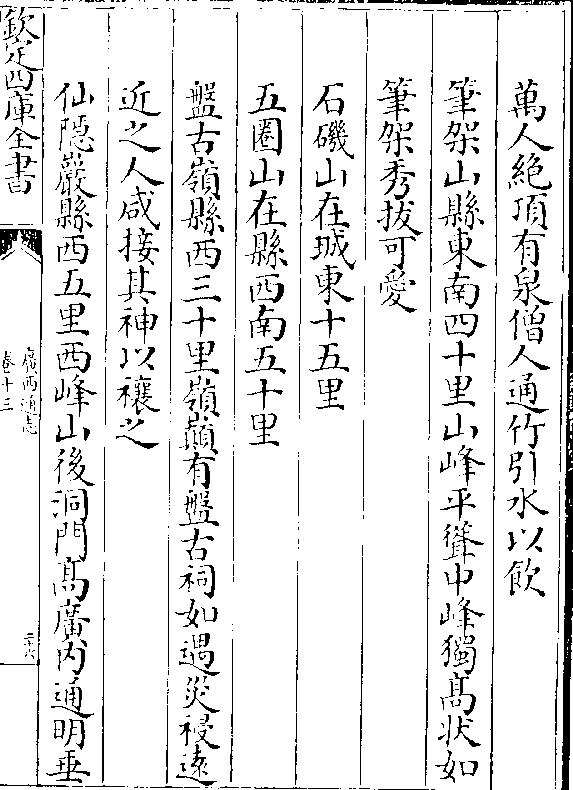 萬人絶頂有泉僧人通竹引水以飲
筆架山縣東南四十里山峰平聳中峰獨髙状如
筆架秀拔可愛
石磯山在城東十五里
五圈山在縣西南五十里
盤古嶺縣西三十里嶺巔有盤古祠如遇災祲遠
近之人咸接其神以禳之
仙隠巖縣西五里西峰山後洞門髙廣内通明垂
欽定四庫全書
廣西通志
卷十三
二十六